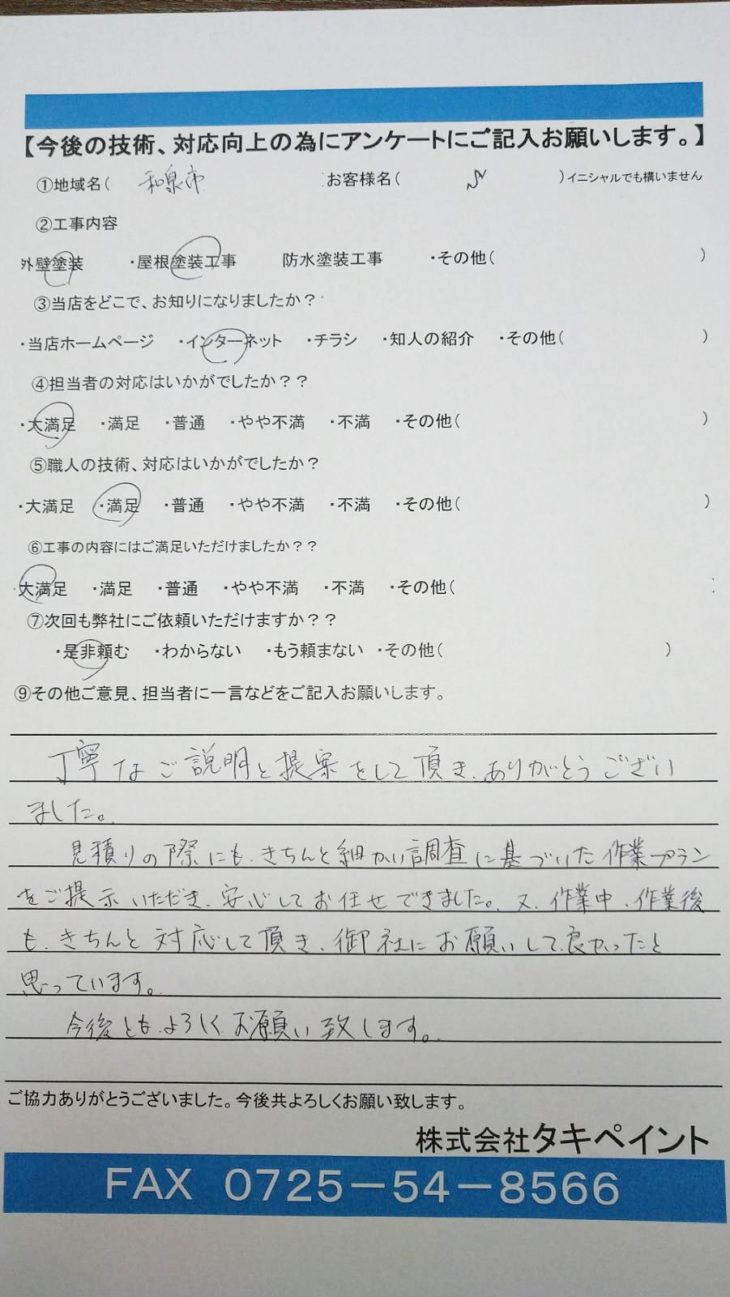 【今後の技術、対応向上の為にアンケートにご記入お願いします。】
①地域名( 和泉市 お客様名( )イニシャルでも構いません
②工事内容
外壁塗装 ・屋根塗装工事 防水塗装工事 ・その他( )
③当店をどこで、お知りになりましたか?
・当店ホームページ ・インターネット ・チラシ ・知人の紹介 ・その他( )
④担当者の対応はいかがでしたか??
・大満足 ・満足 ・普通 ・やや不満 ・不満 ・その他( )
⑤職人の技術、対応はいかがでしたか?
・大満足 ・満足 ・普通 ・やや不満 ・不満 ・その他( )
⑥工事の内容にはご満足いただけましたか??
・大満足 ・満足 ・普通 ・やや不満 ・不満 ・その他(
⑦次回も弊社にご依頼いただけますか??
・是非頼む ・わからない ・もう頼まない ・その他( )
⑨その他ご意見、担当者に一言などをご記入お願いします。
丁寧なご説明と提案をして頂き、ありがとうござい
ました。
見積りの際にも、きちんと細かい調査に基づいた作業プラン
をご提示いただき、安心してお任せできました。又、作業中、作業後
も、きちんと対応して頂き、御社にお願いして良かったと
思っています。
今後ともよろしくお願い致します。
ご協力ありがとうございました。今後共よろしくお願い致します。
株式会社タキペイント
FAX 0725-54-8566